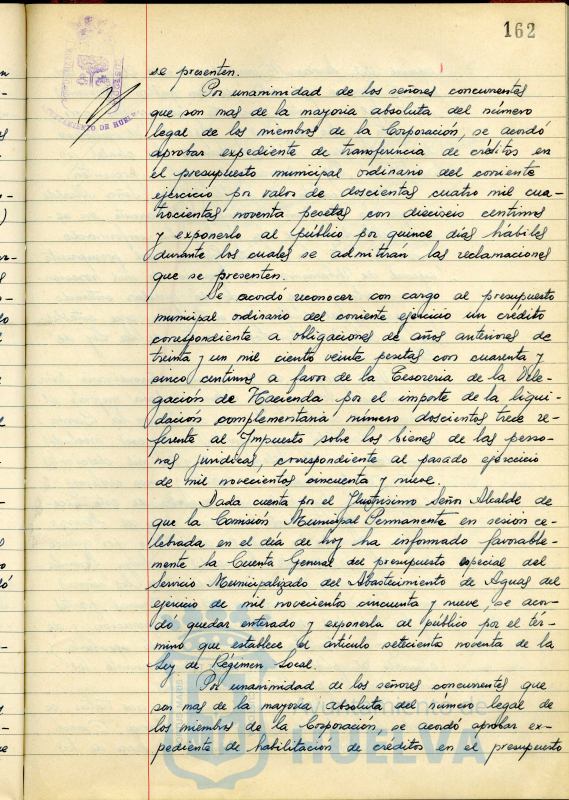 162
AYUNTAMIENTO DE HUELVA
se presenten.
Por unanimidad de los señores concurrentes
que son mas de la mayoria absoluta del número
legal de los miembros de la Corporación, se acordó
aprobar expediente de transferencia de créditos en
el presupuesto municipal ordinario del corriente
ejercicio por valor de doscientas cuatro mil cua-
trocientas noventa pesetas con dieciseis centimos
y exponerlo al público por quince días hábiles
durante los cuales se admitirán las reclamaciones
que se presenten.
Se acordó reconocer con cargo al presupuesto
municipal ordinario del corriente ejercicio un crédito
correspondiente a obligaciones de años anteriores de
treinta y un mil ciento veinte pesetas con cuarenta y
cinco centimos a favor de la Tesoreria de la Dele-
gación de Hacienda por el importe de la liqui-
dación complementaria número doscientos trece re-
ferente al Impuesto sobre los bienes de las perso-
nas juridicas, correspondiente al pasado ejercicio
de mil novecientos cincuenta y nueve.
Dada cuenta por el Ilustrisimo Señor Alcalde de
que la Comisión Municipal Permanente en sesión ce-
lebrada en el día de hoy ha informado favorable-
mente la Cuenta General del presupuesto especial del
Servicio Municipalizado del Abastecimiento de Aguas del
ejercicio de mil novecientos cincuenta y nueve, se acor-
dó quedar enterado y exponerla al público por el tér-
mino que establece el artículo setecientos noventa de la
Ley de Régimen Local.
Por unanimidad de los señores concurrentes que
son mas de la mayoria absoluta del número legal de
los miembros de la Corporación, se acordó aprobar ex-
pediente de habilitación de créditos en el presupuesto
HUELVA